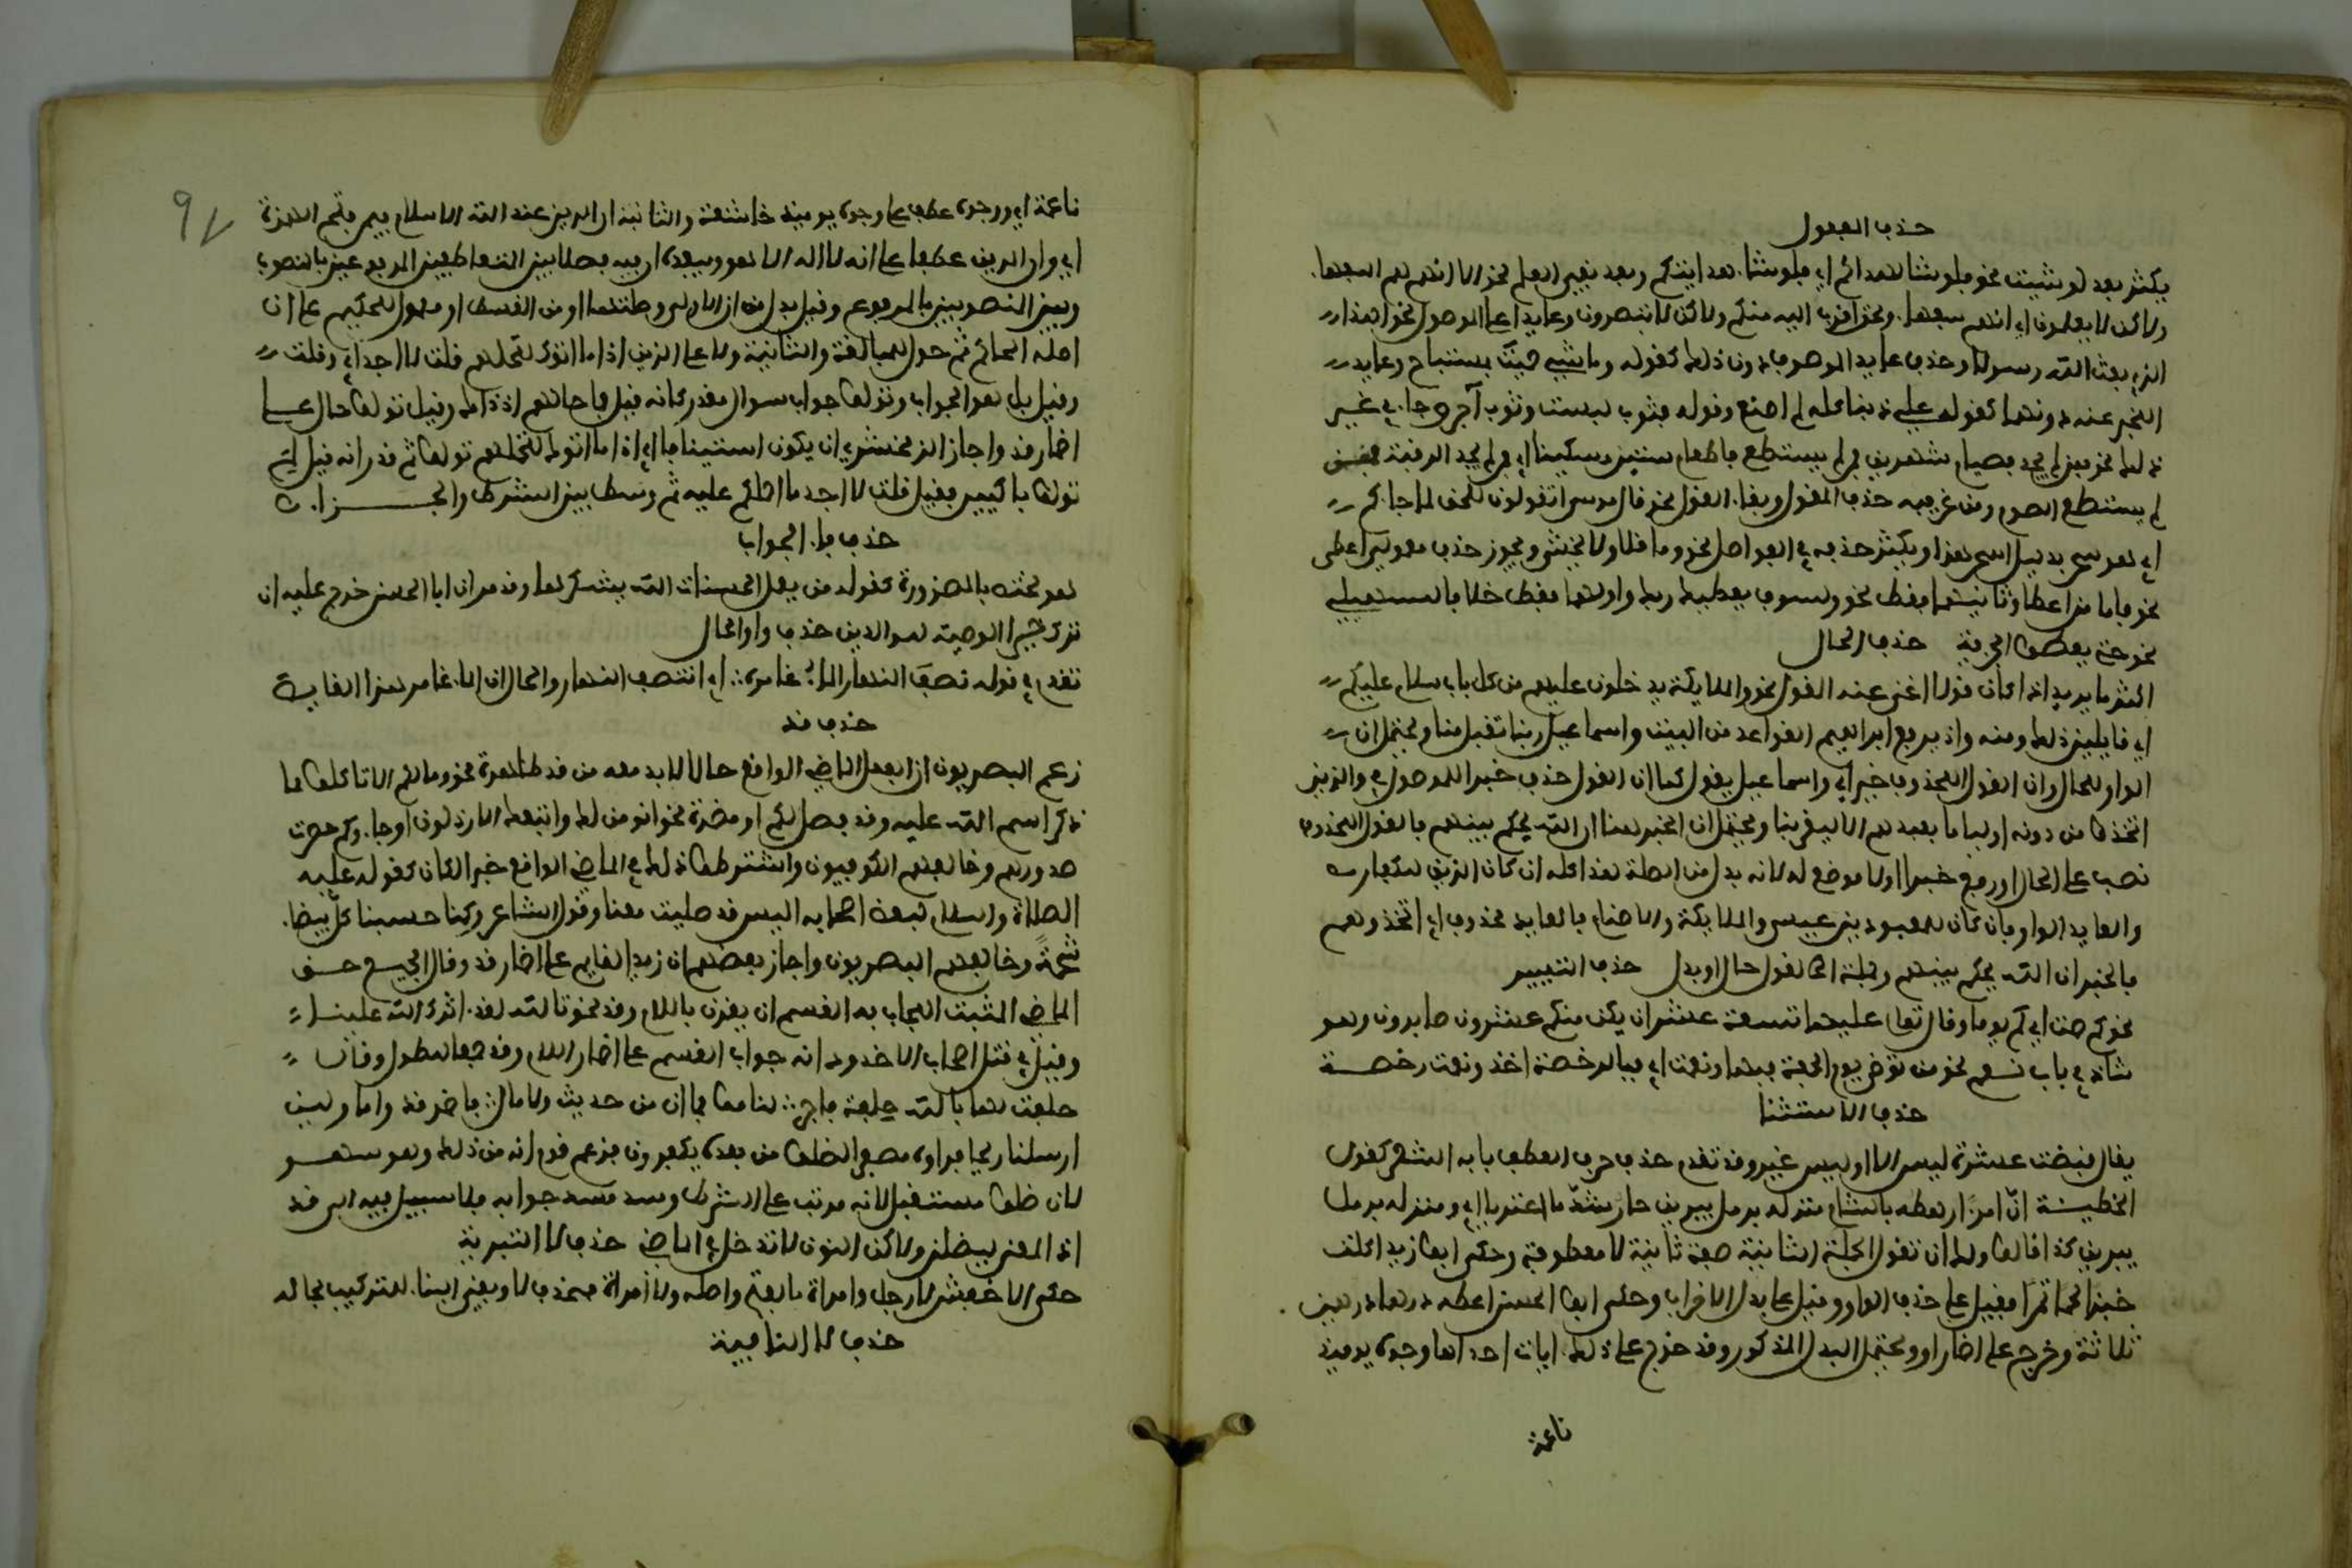 حذف المفعول
يكثر بعد لو شيت نحو فلو شا لهداكم اي فلو شا هدايتكم وبعد نفي العلم نحو الا انهم هم السفها
ولاكن لا يعلمون اي انهم سفها ونحو اقرب اليه منكم ولاكن لا تبصرون وعايدا على الموصول نحو اهذا
الذي بعث الله رسولا وحذف عايد الموصوف دون ذلك كقوله وما شيء حميت بمستباح وعايد
المخبر عنه دونهما كقوله علي ذنبا كله لم اصنع وقوله فثوب لبست وثوب اجر وجا في غير
ذلك نحو فمن لم يجد فصيام شهرين فمن لم يستطع فاطعام ستين مسكينا اي فمن لم يجد الرقبة فمن
لم يستطع الصوم ومن غريبه حذف المقول وبقا القول نحو قال موسى اتقولون للحق لما جاكم
اي هو سحر بدليل اسحر هذا ويكثر حذفه في الفواصل نحو وما قلا ولا تخشى ويجوز حذف مفعولي اعطى
نحو فاما من اعطا وثانيهما فقط نحو ولسوف يعطيك ربك واولهما فقط خلافا للسهيلي
نحو حتى يعطوا الجزية حذف الحال
اكثر ما يريد اذا كان قولا اغنى عنه المقول نحو والملايكة يدخلون عليهم من كل باب سلام عليكم
اي قايلين ذلك ومنه واذ يرفع ابراهيم القواعد من البيت واسماعيل ربنا تقبل منا ويحتمل ان
الواو للحال وان القول المحذوف خبر اي واسماعيل يقول كما ان القول حذف خبرا للموصول في والذين
اتخذوا من دونه اوليا ما نعبدهم الا ليقربونا ويحتمل ان الخبر هنا ان الله يحكم بينهم فالقول المحذوف
نصب على الحال او رفع خبرا اولا موضع له لانه بدل من الصلة هذا كله ان كان الذين للكفار
والعايد الواو فان كان للمعبودين عيسى والملايكة والاصنام فالعايد محذوف اي اتخذوهم
فالخبر ان الله يحكم بينهم وجملة القول حال او بدل حذف التمييز
نحو كم صمت اي كم يوما وقال تعالى عليها تسعة عشر ان يكن منكم عشرون صابرون وهو
شاذ في باب نعم نحو من توضى يوم الجمعة فبها ونعمت اي فبالرخصة اخذ ونعمت رخصة
حذف الاستثنا
يقال قبضت عشرة ليس الا او ليس غير وقد تقدم حذف حرف العطف بابه الشعر كقول
الحطيئة ان امرا رهطه بالشام منزله برمل يبرين جار شد ما اغتربا اي ومنزله برمل
يبرين كذا قالوا ولك ان تقول الجملة الثانية صفة ثانية لا معطوفة وحكى ابو زيد اكلت
خبزا لحما تمرا فقيل على حذف الواو وقيل على بدل الاضراب وحكى ابو الحسن اعطه درهما درهمين
ثلاثة وخرج على اضمار او ويحتمل البدل المذكور وقد خرج على ذلك ايات احداها وجوه يوميذ
ناعمة
ناعمة اي ووجوه عطف على وجوه يوميذ خاشعة والثانية ان الدين عند الله الاسلام فيمن فتح الهمزة
اي وان الدين عطفا على انه لا اله الا هو ويبعده ان فيه فصلا بين المتعاطفين المرفوعين بالمنصوب
وبين المنصوبين بالمرفوع وقيل بدل من ان الاولى وصلتها او من القسط او معمول للحكيم على ان
اصله الحاكم ثم حول للمبالغة والثانية ولا على الذين اذا ما اتوك لتحملهم قلت لا اجد اي وقلت
وقيل بل هو الجواب وتولوا جواب سوال مقدر كانه قيل فما حالهم اذ ذاك وقيل تولوا حال على
اضمار قد واجاز الزمخشري ان يكون استينافا اي اذا ما اتوك لتحملهم تولوا ثم قدر انه قيل لم
تولوا باكيين فقيل قلت لا اجد ما احملكم عليه ثم وسط بين الشرط والجزا
حذف فا الجواب
هو مختص بالضرورة كقوله من يفعل الحسنات الله يشكرها وقد مر ان ابا الحسن خرج عليه ان
ترك خيرا الوصية للوالدين حذف واو الحال
تقدم في قوله نصف النهار الما غامره اي انتصف النهار والحال ان الما غامر هذا الغايص
حذف قد
زعم البصريون ان الفعل الماضي الواقع حالا لابد معه من قد ظاهرة نحو وما لكم الا تاكلوا مما
ذكر اسم الله عليه وقد فصل لكم او مضمرة نحو انومن لك واتبعك الارذلون او جاوكم حصرت
صدورهم وخالفهم الكوفيون واشترطوا ذلك في الماضي الواقع خبر الكان كقوله عليه
الصلاة والسلام لبعض اصحابه اليس قد صليت معنا وقول الشاعر وكنا حسبنا كل بيضا
شحمة وخالفهم البصريون واجاز بعضهم ان زيدا لقايم على اضمار قد وقال الجميع حق
الماضي المثبت المجاب به القسم ان يقرن باللام وقد نحو تالله لقد اثرك الله علينا
وقيل في قتل اصحاب الاخدود انه جواب القسم على اضمار اللام وقد جميعا للطول وقال
حلفت لها بالله حلفة فاجر لناموا فما ان من حديث ولا صال فاضمر قد واما ولين
ارسلنا ريحا فراوه مصفرا لظلوا من بعده يكفرون فزعم قوم انه من ذلك وهو سهو
لان ظلوا مستقبل لانه مرتب على الشرط وسد مسد جوابه فلا سبيل فيه الى قد
اذ المعنى ليظلن ولاكن النون لا تدخل في الماضي حذف لا التبرية
حكى الاخفش لا رجل وامراة بالفتح واصله ولا امراة فحذف لا وبقي البنا للتركيب بحاله
حذف لا النافية